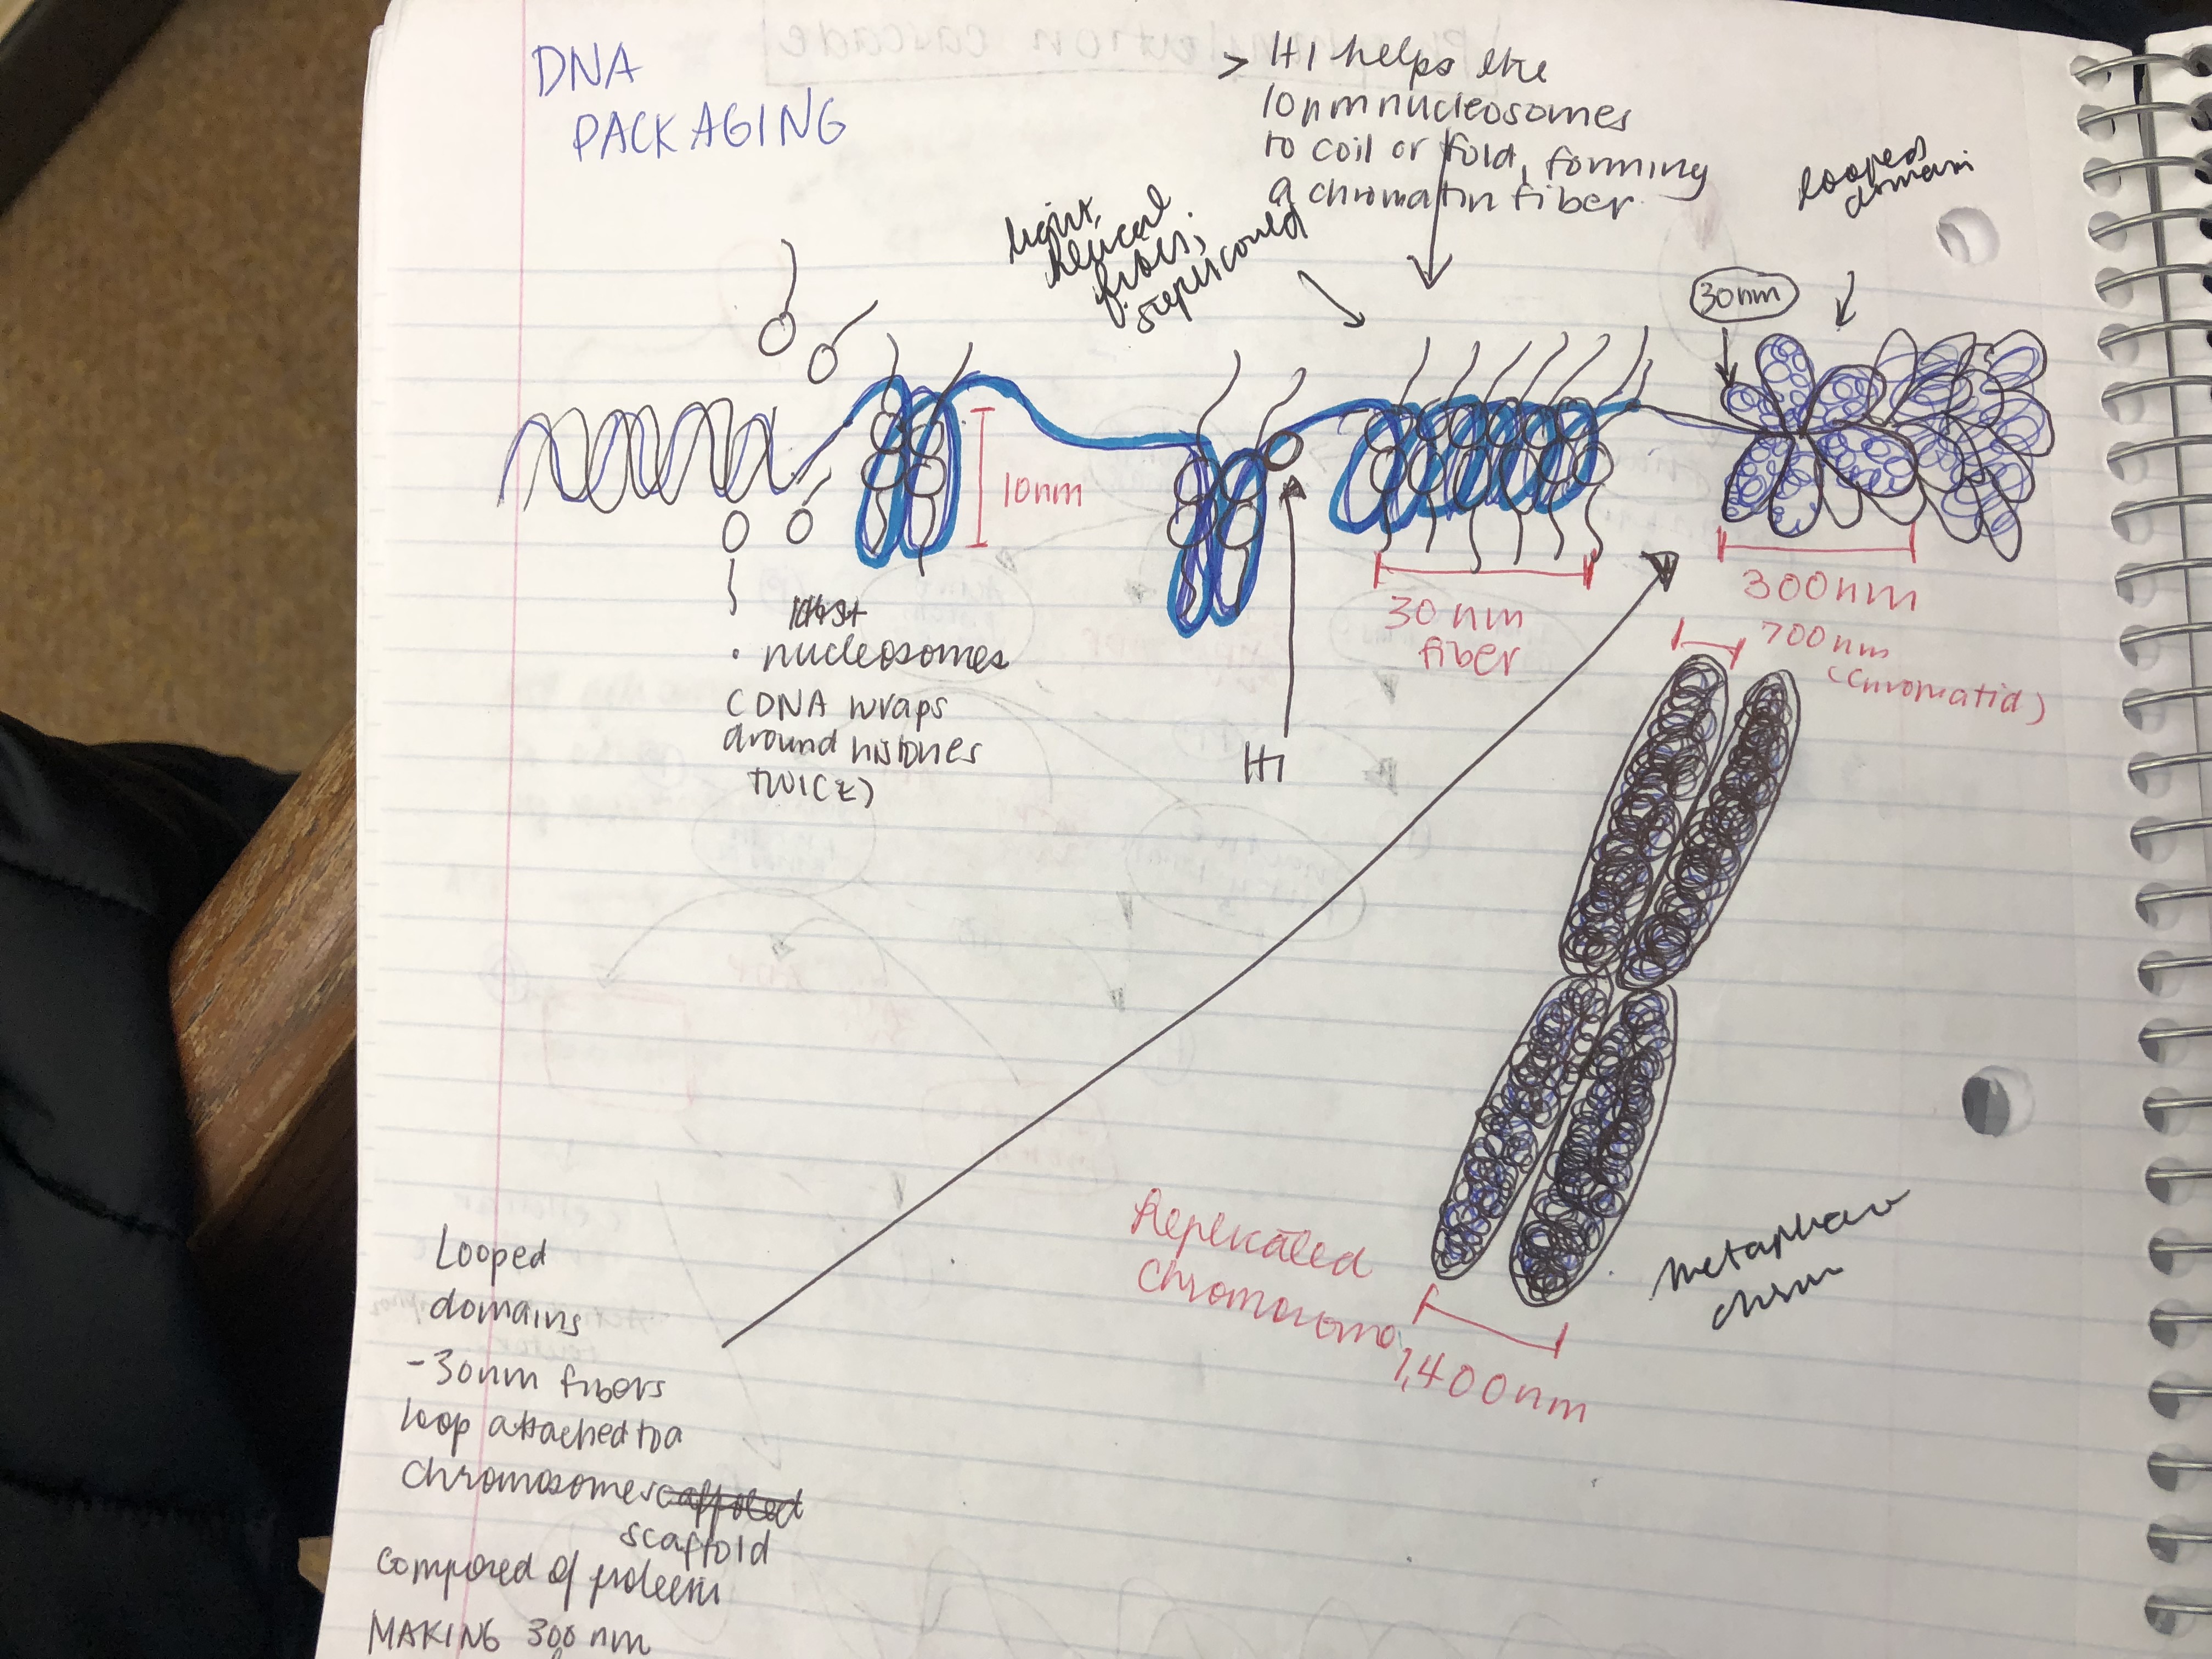 DNA
PACKAGING
> H1 helps the
10nm nucleosomes
to coil or fold, forming
a chromatin fiber.
looped
domain
helical
30nm
10nm
30 nm
fiber
300nm
700nm
(chromatid)
• nucleosomes
(DNA wraps
around histones
twice)
H1
Looped
domains
-30nm fibers
loop attached to a
chromosome scaffold
scaffold
composed of protein
MAKING 300 nm
Replicated
chromosome
1,400nm
metaphase
chrm